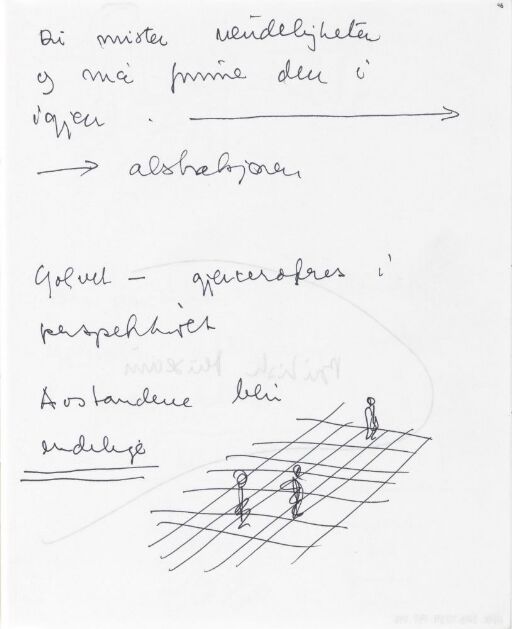 Di mister uendeligheten
og må finne den i
igjen .
abstraksjonen
Golvet — gjenerobres i
perspektivet
Avstandene blir
endelige
British Museum